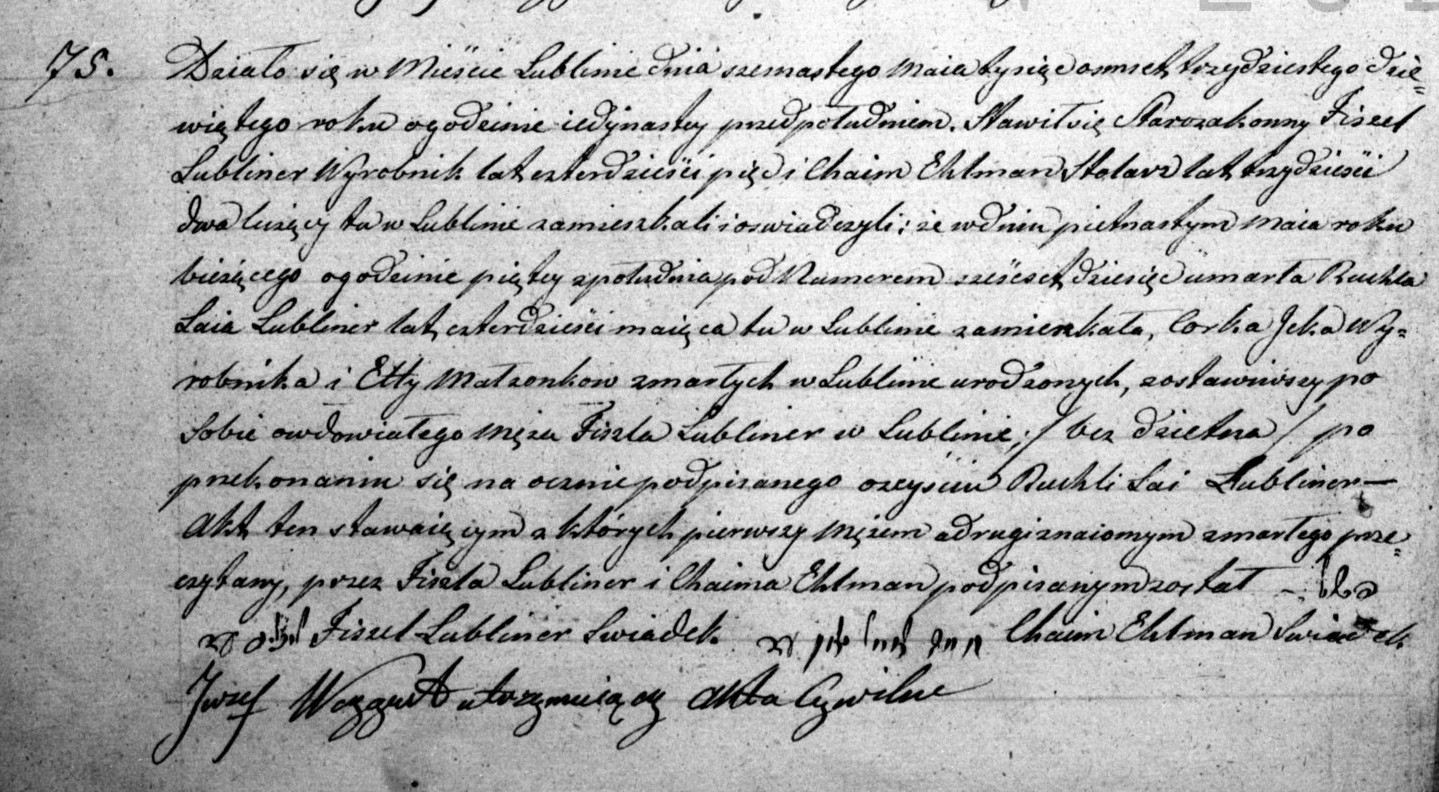 75. Działo się w Mieście Lublinie dnia szesnastego Maia tysiąc osmset trzydziestego dzie=
wiątego roku ogodzinie iedynastey przedpołudniem. Stawił się Starozakonny Fiszel
Lubliner Wyrobnik lat czterdzieści pięć i Chaim Ehlman Stolarz lat trzydzieści
dwa liczący tu w Lublinie zamieszkali i oswiadczyli; że w dniu pietnastym Maia roku
bieżącego ogodzinie piątey zpołudnia pod Numerem sześćset dziesięć umarła Ruchla
Laia Lubliner lat czterdzieści maiąca tu w Lublinie zamieszkała, Corka Jcka Wy=
robnika i Etty Małzonkow zmarłych w Lublinie urodzonych, zostawiwszy po
sobie owdowiałego męża Fiszla Lubliner w Lublinie; / bez dzietna / po
przekonaniu się na ocznie podpisanego ozeyściu Ruchli Lai Lubliner —
Akt ten stawaiącym z których pierwszy Mężem a drugi znaiomym zmarłego prze=
czytany, przez Fiszla Lubliner i Chaima Ehlman podpisanym został –
Fiszel Lubliner Swiadek Chaim Ehlman Swiadek
Jozef utrzymuiący Akta Cywilne